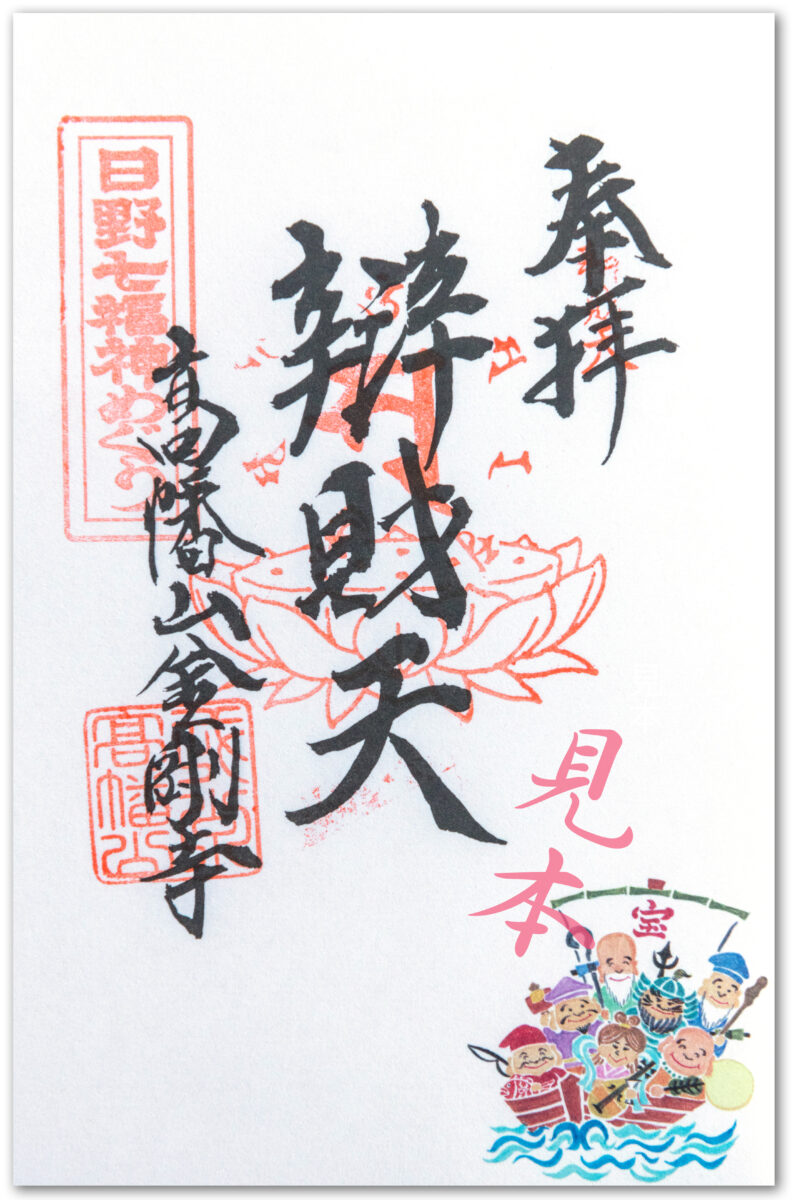 奉拝
辨財天
日野七福神めぐり
高幡山金剛寺
見本
宝